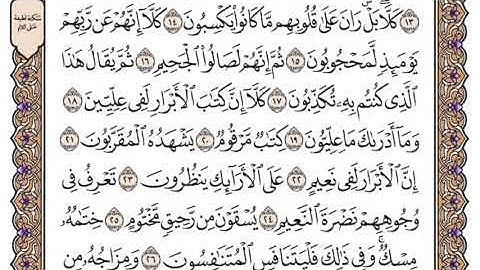 سكتة لطيفة
على اللام
١٣ كَلَّا ۖ بَلْ ۜ رَانَ عَلَىٰ قُلُوبِهِم مَّا كَانُوا۟ يَكْسِبُونَ ١٤ كَلَّآ إِنَّهُمْ عَن رَّبِّهِمْ
يَوْمَئِذٍ لَّمَحْجُوبُونَ ١٥ ثُمَّ إِنَّهُمْ لَصَالُوا۟ ٱلْجَحِيمِ ١٦ ثُمَّ يُقَالُ هَٰذَا
ٱلَّذِى كُنتُم بِهِۦ تُكَذِّبُونَ ١٧ كَلَّآ إِنَّ كِتَٰبَ ٱلْأَبْرَارِ لَفِى عِلِّيِّينَ ١٨
وَمَآ أَدْرَىٰكَ مَا عِلِّيُّونَ ١٩ كِتَٰبٌ مَّرْقُومٌ ٢٠ يَشْهَدُهُ ٱلْمُقَرَّبُونَ ٢١
إِنَّ ٱلْأَبْرَارَ لَفِى نَعِيمٍ ٢٢ عَلَى ٱلْأَرَآئِكِ يَنظُرُونَ ٢٣ تَعْرِفُ فِى
وُجُوهِهِمْ نَضْرَةَ ٱلنَّعِيمِ ٢٤ يُسْقَوْنَ مِن رَّحِيقٍ مَّخْتُومٍ ٢٥ خِتَٰمُهُۥ
مِسْكٌ ۚ وَفِى ذَٰلِكَ فَلْيَتَنَافَسِ ٱلْمُتَنَٰفِسُونَ ٢٦ وَمِزَاجُهُۥ مِن